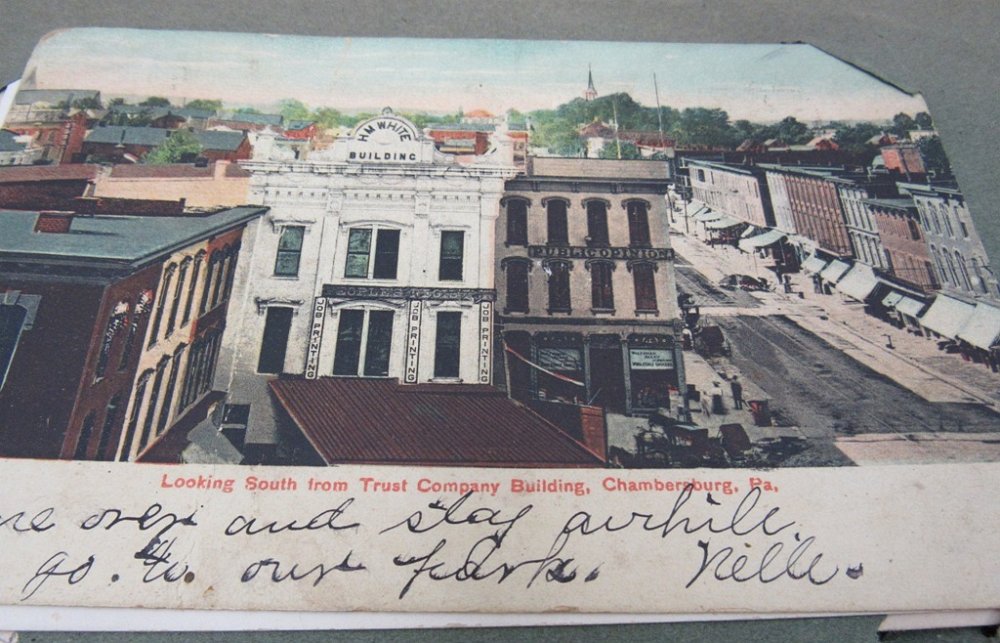 H.M. WHITE
BUILDING
PUBLIC OPINION
JOB PRINTING
JOB PRINTING
JOB PRINTING
Looking South from Trust Company Building, Chambersburg, Pa,
over and stay awhile
go. to. our park. Nelle.